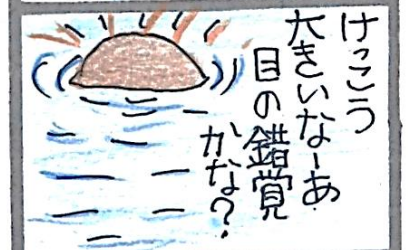 けっこう
大きいなーあ
目の錯覚
かな？